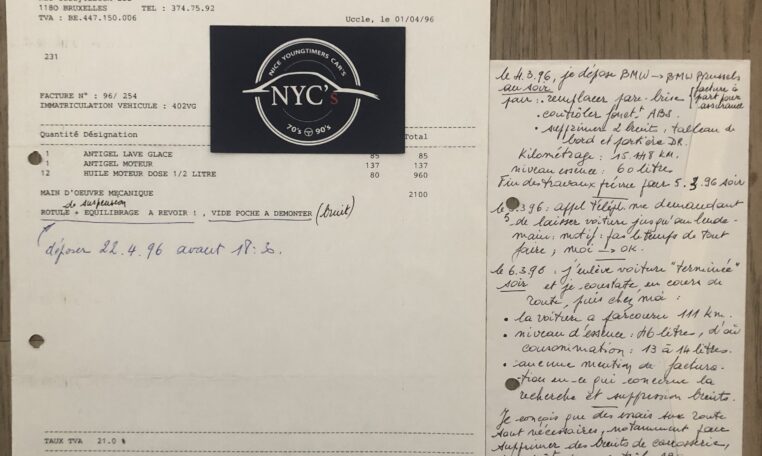 1180 BRUXELLES TEL : 374.75.92
TVA : BE.447.150.006
Uccle, le 01/04/96
231
FACTURE N° : 96/ 254
IMMATRICULATION VEHICULE : 402VG
NICE YOUNGTIMERS CAR'S
NYC's
70's 90's
Quantité Désignation Total
1 ANTIGEL LAVE GLACE 85 85
1 ANTIGEL MOTEUR 137 137
12 HUILE MOTEUR DOSE 1/2 LITRE 80 960
MAIN D'OEUVRE MECANIQUE 2100
de suspension
ROTULE + EQUILIBRAGE A REVOIR ! , VIDE POCHE A DEMONTER (bruit)
déposer 22.4.96 avant 18:30.
TAUX TVA 21.0 %
le 4.3.96, je dépose BMW → BMW Brussels
au soir
pour : remplacer pare-brise (facture à part pour assurance
contrôler fonct ABS.
• supprimer 2 bruits : tableau de
bord et portière DR.
Kilométrage : 15.148 km.
niveau essence : 60 litres
Fin des travaux prévue pour 5.3.96 soir
le 5.3.96 : appel Téléph. me demandant
de laisser voiture jusqu'au lende-
main : motif : pas le temps de tout
faire ; moi → OK.
le 6.3.96 : j'enlève voiture "terminée"
soir et je constate, en cours de
route, puis chez moi :
• la voiture a parcouru 111 km.
• niveau d'essence : 46 litres, d'où
consommation : 13 à 14 litres.
• aucune mention de factura-
tion en ce qui concerne la
recherche et suppression bruits.
Je conçois que des essais sur route
sont nécessaires, notamment pour
supprimer des bruits de carrosserie,